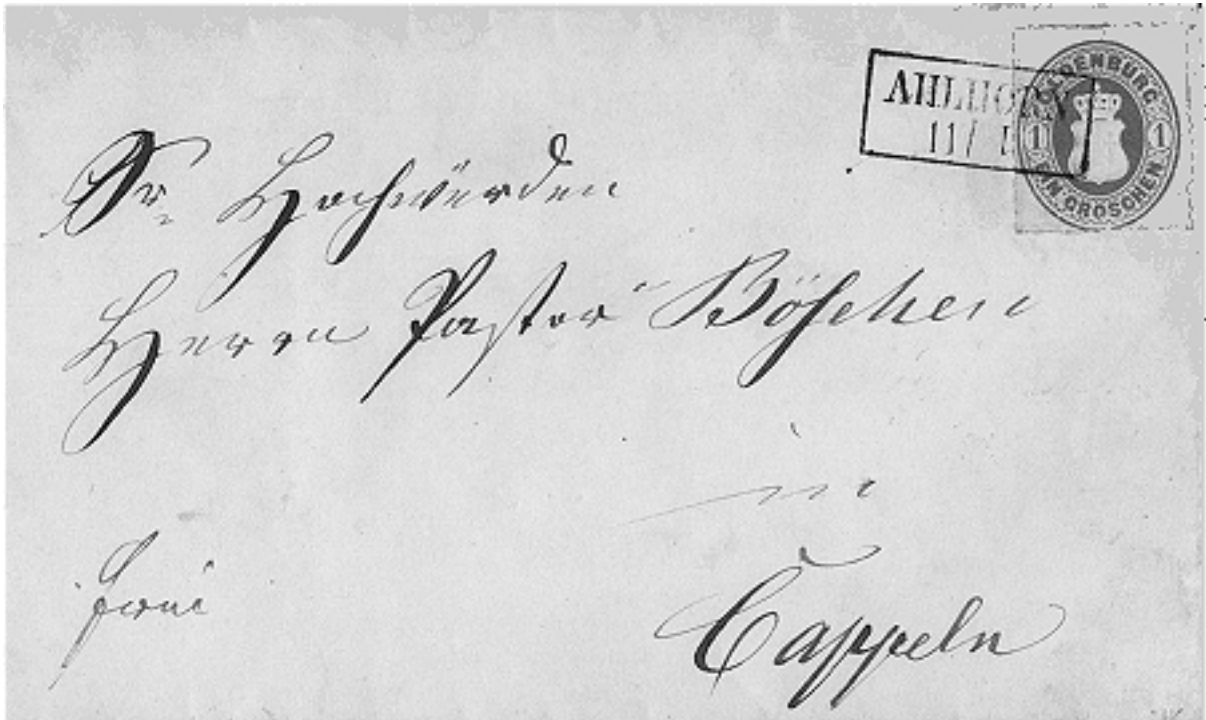 AHLHORN
11/
OLDENBURG
1 1
EIN GROSCHEN.
Sr. Hochwürden
Herrn Pastor Böschen
in
Cappeln
frei